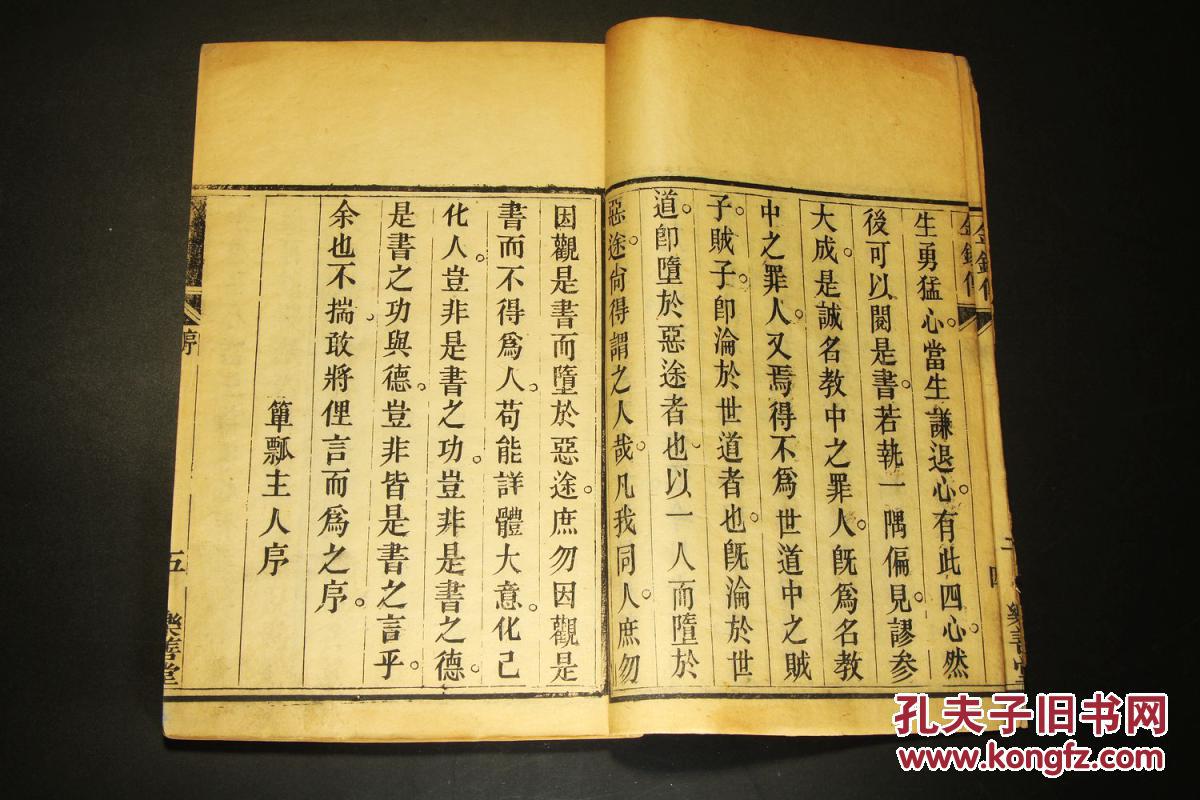 生勇猛心。當生謙退心。有此四心。然
後可以閱是書。若執一隅偏見。謬參
大成。是誠名教中之罪人。旣爲名教
中之罪人。又焉得不爲世道中之賊
子。賊子。卽淪於世道者也。旣淪於世
道。卽墮於惡途者也。以一人而墮於
惡途。尙得謂之人哉。凡我同人。庶勿
因觀是書而墮於惡途。庶勿因觀是
書而不得爲人。苟能詳體大意。化己
化人。豈非是書之功。豈非是書之德。
是書之功與德。豈非皆是書之言乎。
余也不揣。敢將俚言而爲之序。
簞瓢主人序
序
五
樂善堂
四
樂善堂
孔夫子旧书网
www.kongfz.com